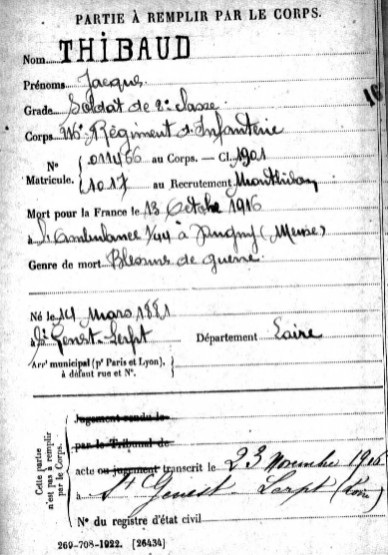 PARTIE À REMPLIR PAR LE CORPS.
Nom THIBAUD
Prénoms Jacques
Grade Soldat de 2e classe
Corps 116e Régiment d'Infanterie
N° 011466 au Corps. — Cl. 1901
Matricule. 1017 au Recrutement Montbrison
Mort pour la France le 13 Octobre 1916
à l'ambulance 1/44 à (Meuse)
Genre de mort Blessures de guerre
Né le 14 Mars 1881
à St Genest-Lerpt Département Loire
Arrt municipal (pr Paris et Lyon),
à défaut rue et N°.
Cette partie n'est pas à remplir par le Corps.
Jugement rendu le
par le Tribunal de
acte ou jugement transcrit le 23 Novembre 1916
à St Genest-Lerpt (Loire)
N° du registre d'état civil
269-708-1922. [26434]